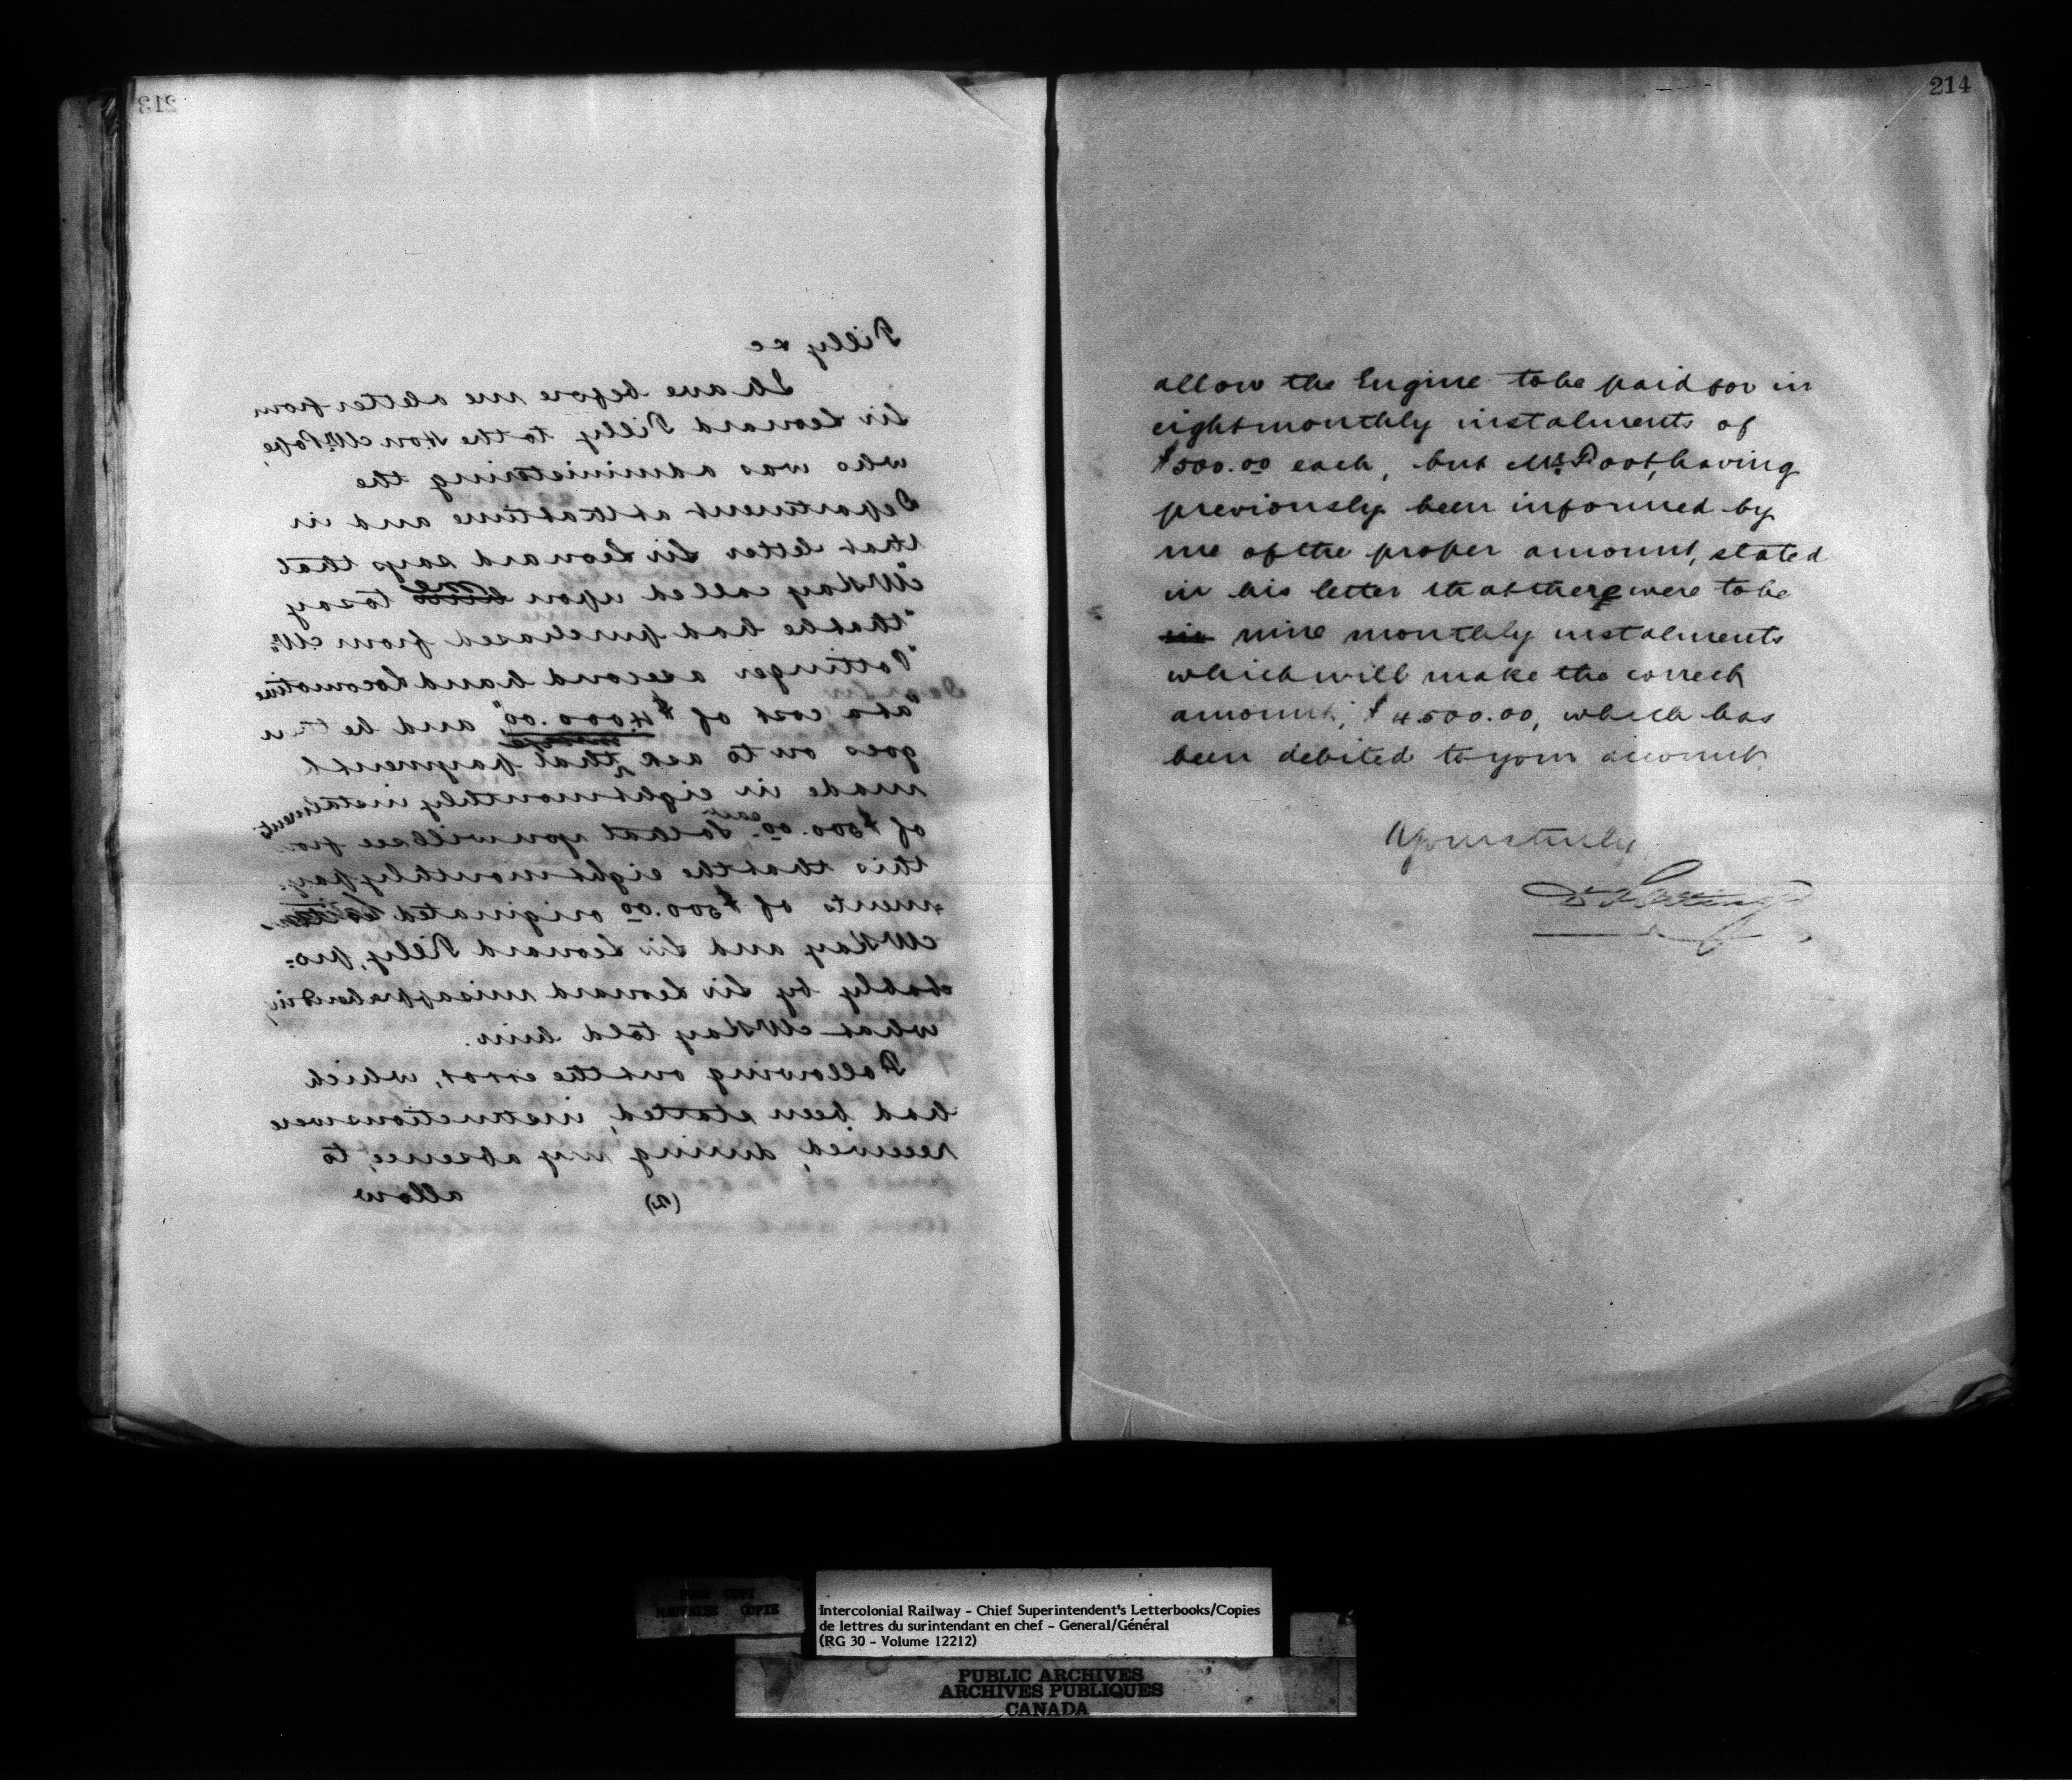 213
Tilly &c
I have before me a letter from
Sir Leonard Tilly to the Hon Mr Pope,
who was administering the
Department at that time and in
that letter Sir Leonard says that
"McKay called upon me to say
"that he had purchased from Mr.
"Pottinger a second hand Locomotive
"at a cost of $4000.00", and he then
goes on to ask that payment be
made in eight monthly instalments
of $500.00 each. So that you will see from
this that the eight monthly pay-
ments of $500.00 originated
McKay and Sir Leonard Tilly, pro-
bably by Sir Leonard misapprehending
what McKay told him.
Following out the error, which
had been started, instructions were
received, during my absence, to
(2) allow
214
allow the Engine to be paid for in
eight monthly instalments of
$500.00 each, but Mr. Foot, having
previously been informed by
me of the proper amount, stated
in his letter that there were to be
nine monthly instalments
which will make the correct
amount, $4500.00, which has
been debited to your account.
Yours truly,
D Pottinger
POOR COPY
MAUVAISE COPIE
Intercolonial Railway - Chief Superintendent's Letterbooks/Copies
de lettres du surintendant en chef - General/Général
(RG 30 - Volume 12212)
PUBLIC ARCHIVES
ARCHIVES PUBLIQUES
CANADA